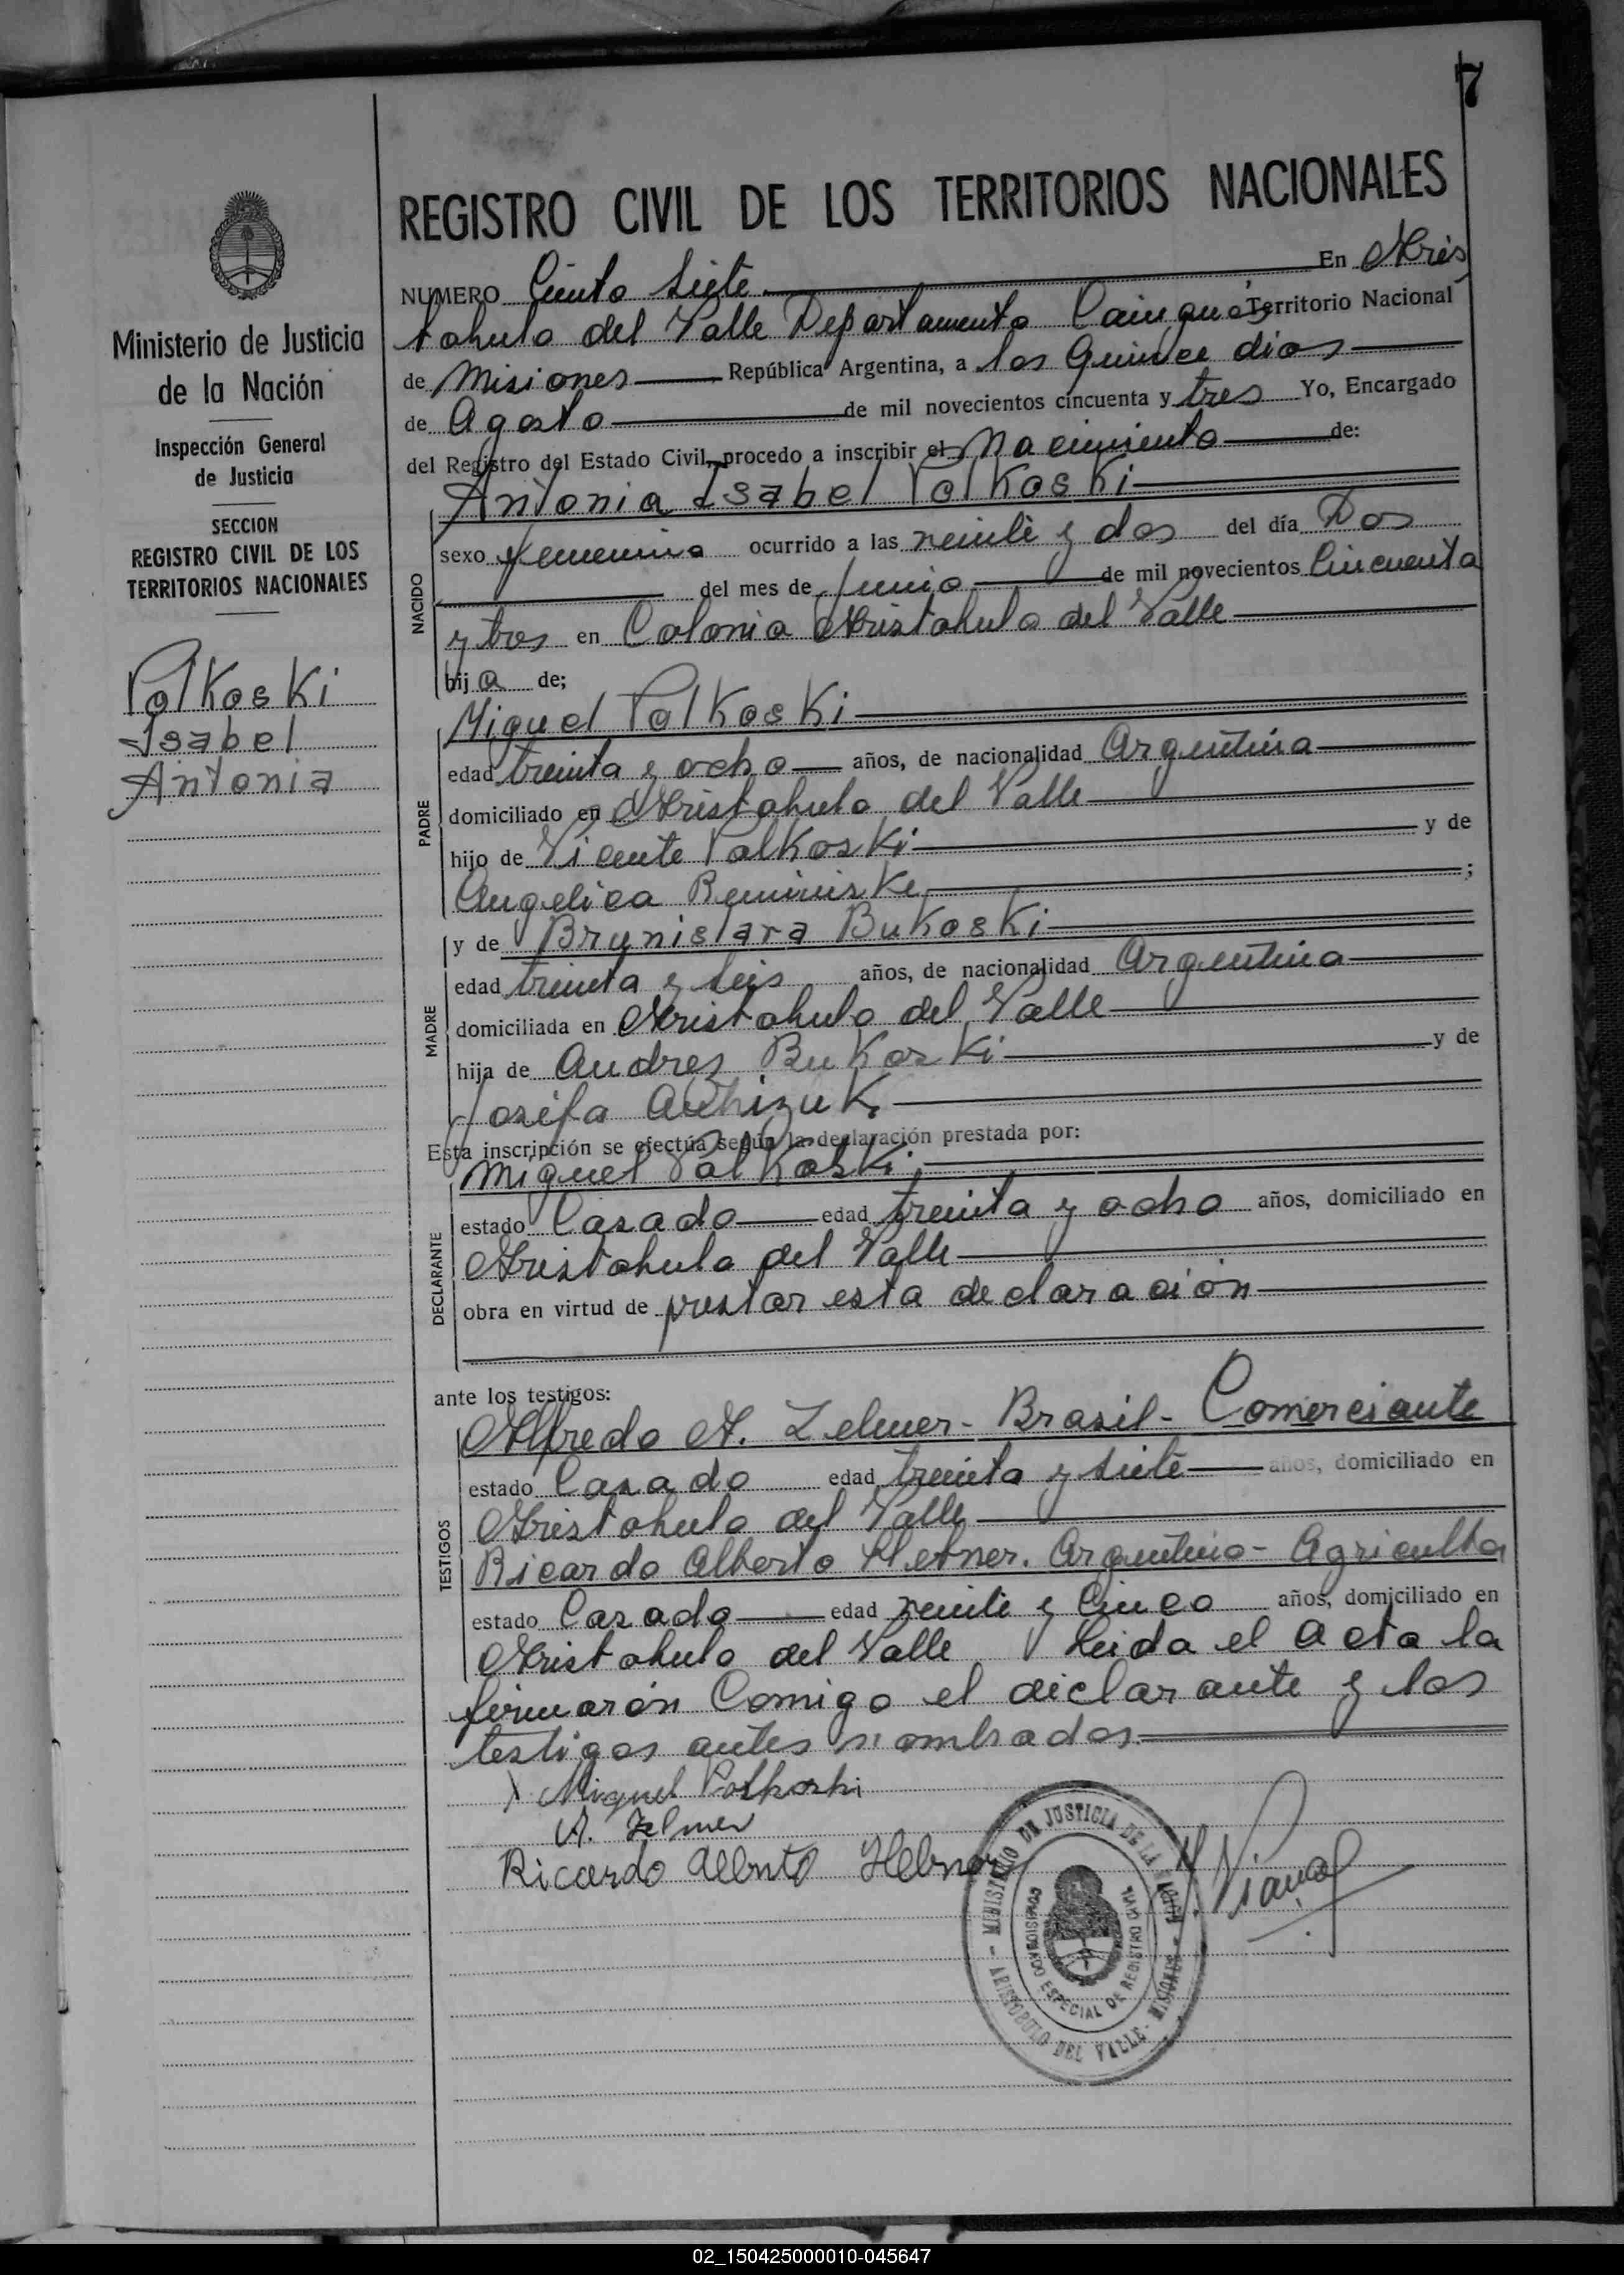 7
REGISTRO CIVIL DE LOS TERRITORIOS NACIONALES
Ministerio de Justicia
de la Nación
Inspección General
de Justicia
SECCION
REGISTRO CIVIL DE LOS
TERRITORIOS NACIONALES
Polkoski
Isabel
Antonia
NUMERO Ciento Siete En Aris
tobulo del Valle Departamento Cainguás Territorio Nacional
de Misiones República Argentina, a los Quince dias
de Agosto de mil novecientos cincuenta y tres Yo, Encargado
del Registro del Estado Civil, procedo a inscribir el Nacimiento de:
NACIDO
Antonia Isabel Polkoski
sexo femenino ocurrido a las veinte y dos del día Dos
del mes de Junio de mil novecientos Cincuenta
y tres en Colonia Aristobulo del Valle
hij a de;
PADRE
Miguel Polkoski
edad treinta y ocho años, de nacionalidad Argentina
domiciliado en Aristobulo del Valle
hijo de Vicente Polkoski y de
Angelica ;
MADRE
y de Brunislara Bukoski
edad treinta y seis años, de nacionalidad Argentina
domiciliada en Aristobulo del Valle
hija de Andres Bukoski y de
Josefa
Esta inscripción se efectúa según la declaración prestada por:
DECLARANTE
Miguel Polkoski
estado Casado edad treinta y ocho años, domiciliado en
Aristobulo del Valle
obra en virtud de prestar esta declaración
ante los testigos:
TESTIGOS
Alfredo A. Zelmer - Brasil - Comerciante
estado Casado edad treinta y siete años, domiciliado en
Aristobulo del Valle
Ricardo Alberto Hebner. Argentino - Agricultor
estado Casado edad veinte y Cinco años, domiciliado en
Aristobulo del Valle Leida el Acta la
firmarón Comigo el declarante y los
testigos antes nombrados.
X Miguel Polkoski
A. Zelmer
Ricardo Alberto Hebner
MINISTERIO DE JUSTICIA DE LA NACION
ARISTOBULO DEL VALLE - MISIONES
ESPECIAL DE REGISTRO CIVIL
02_150425000010-045647